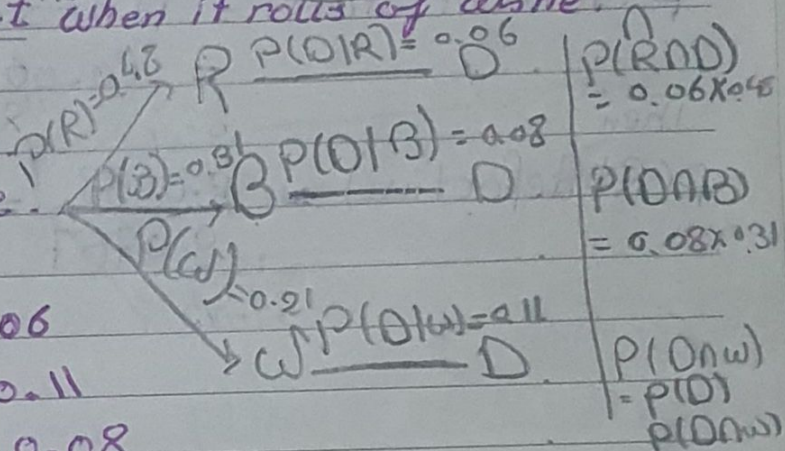 t when it rolls of
P(R)=0.48 R P(D|R)=0.06 D P(R∩D)
= 0.06×0.48
P(B)=0.31 B P(D|B)=0.08 D P(D∩B)
= 0.08×0.31
P(W)=0.21 W P(D|W)=0.11 D P(D∩W)
= P(D)
P(D∩W)
06
0.11
0.08